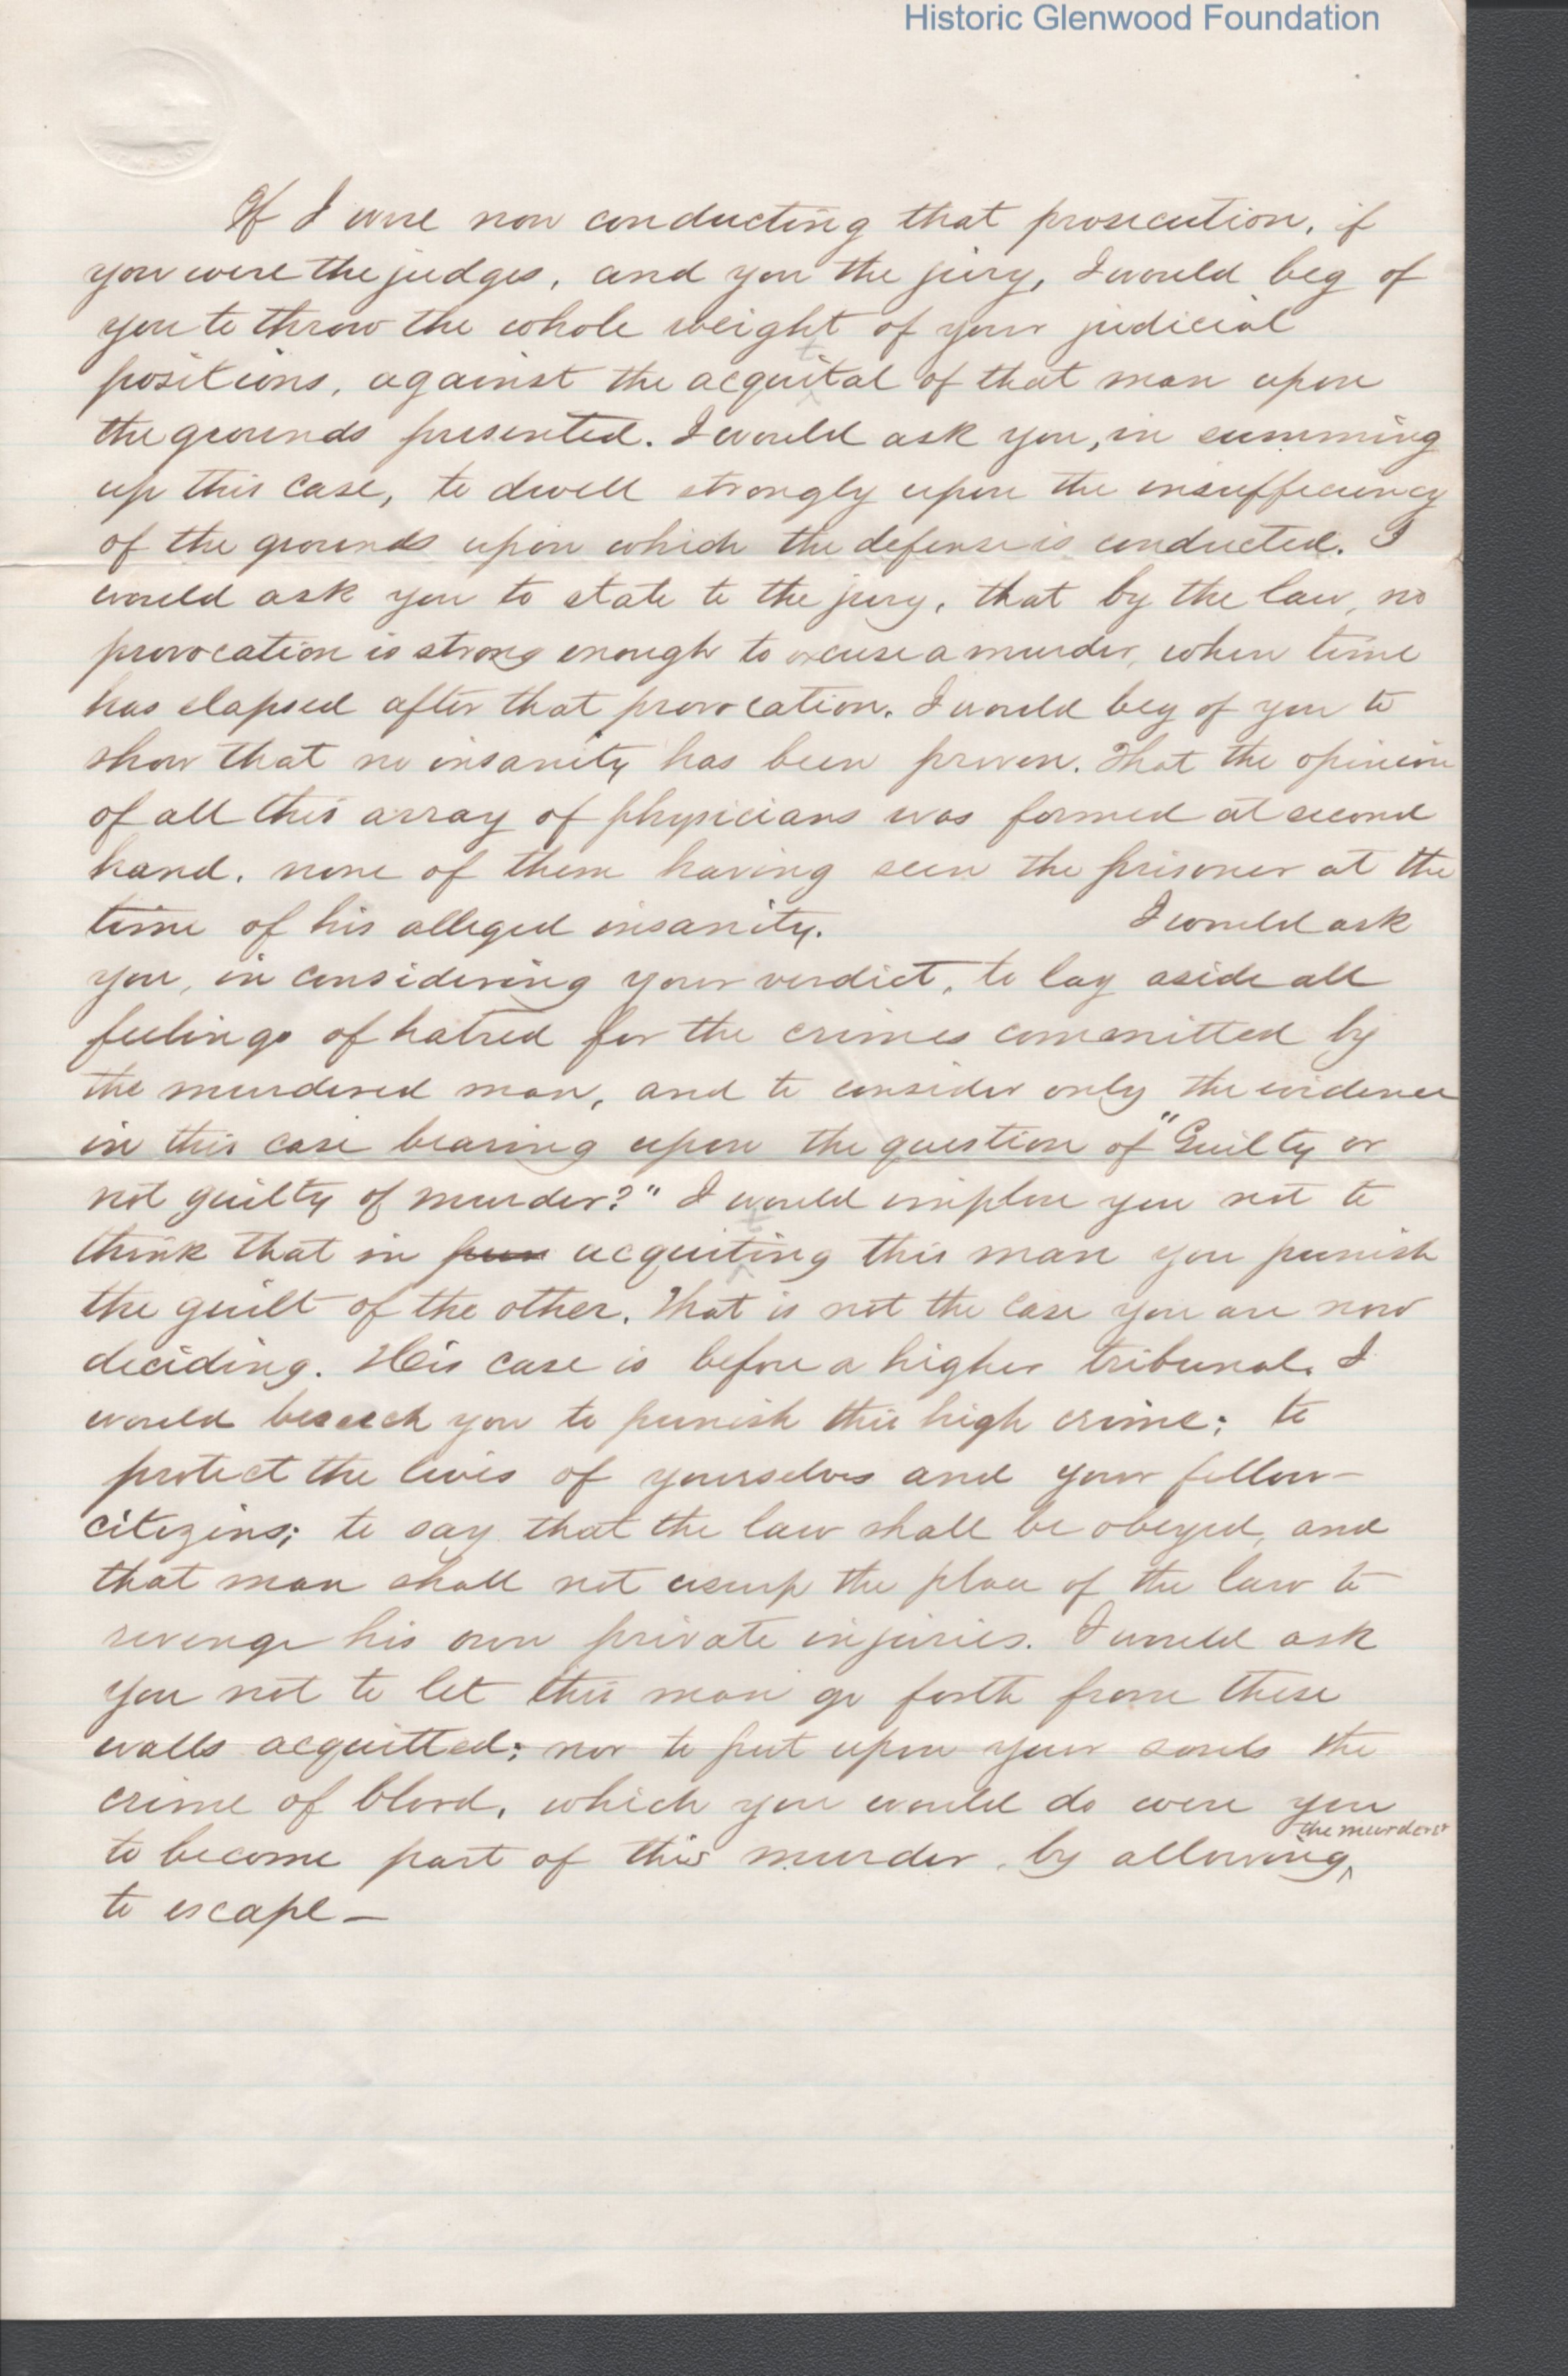 Historic Glenwood Foundation
If I were now conducting that prosecution, if
you were the judges, and you the jury, I would beg of
you to throw the whole weight of your judicial
positions, against the acquittal of that man upon
the grounds presented. I would ask you, in summing
up this case, to dwell strongly upon the insufficiency
of the grounds upon which the defense is conducted. I
would ask you to state to the jury, that by the law, no
provocation is strong enough to excuse a murder, when time
has elapsed after that provocation. I would beg of you to
show that no insanity has been proven. That the opinion
of all this array of physicians was formed at second
hand, none of them having seen the prisoner at the
time of his alleged insanity. I would ask
you, in considering your verdict, to lay aside all
feelings of hatred for the crimes committed by
the murdered man, and to consider only the evidence
in this case bearing upon the question of "Guilty or
not guilty of murder?" I would implore you not to
think that in pun acquitting this man you punish
the guilt of the other. That is not the case you are now
deciding. His case is before a higher tribunal. I
would beseech you to punish this high crime; to
protect the lives of yourselves and your fellow-
citizens; to say that the law shall be obeyed, and
that man shall not usurp the place of the law to
revenge his own private injuries. I would ask
you not to let this man go forth from these
walls acquitted; nor to put upon your souls the
crime of blood, which you would do were you
to become part of this murder, by allowing the murderer
to escape—